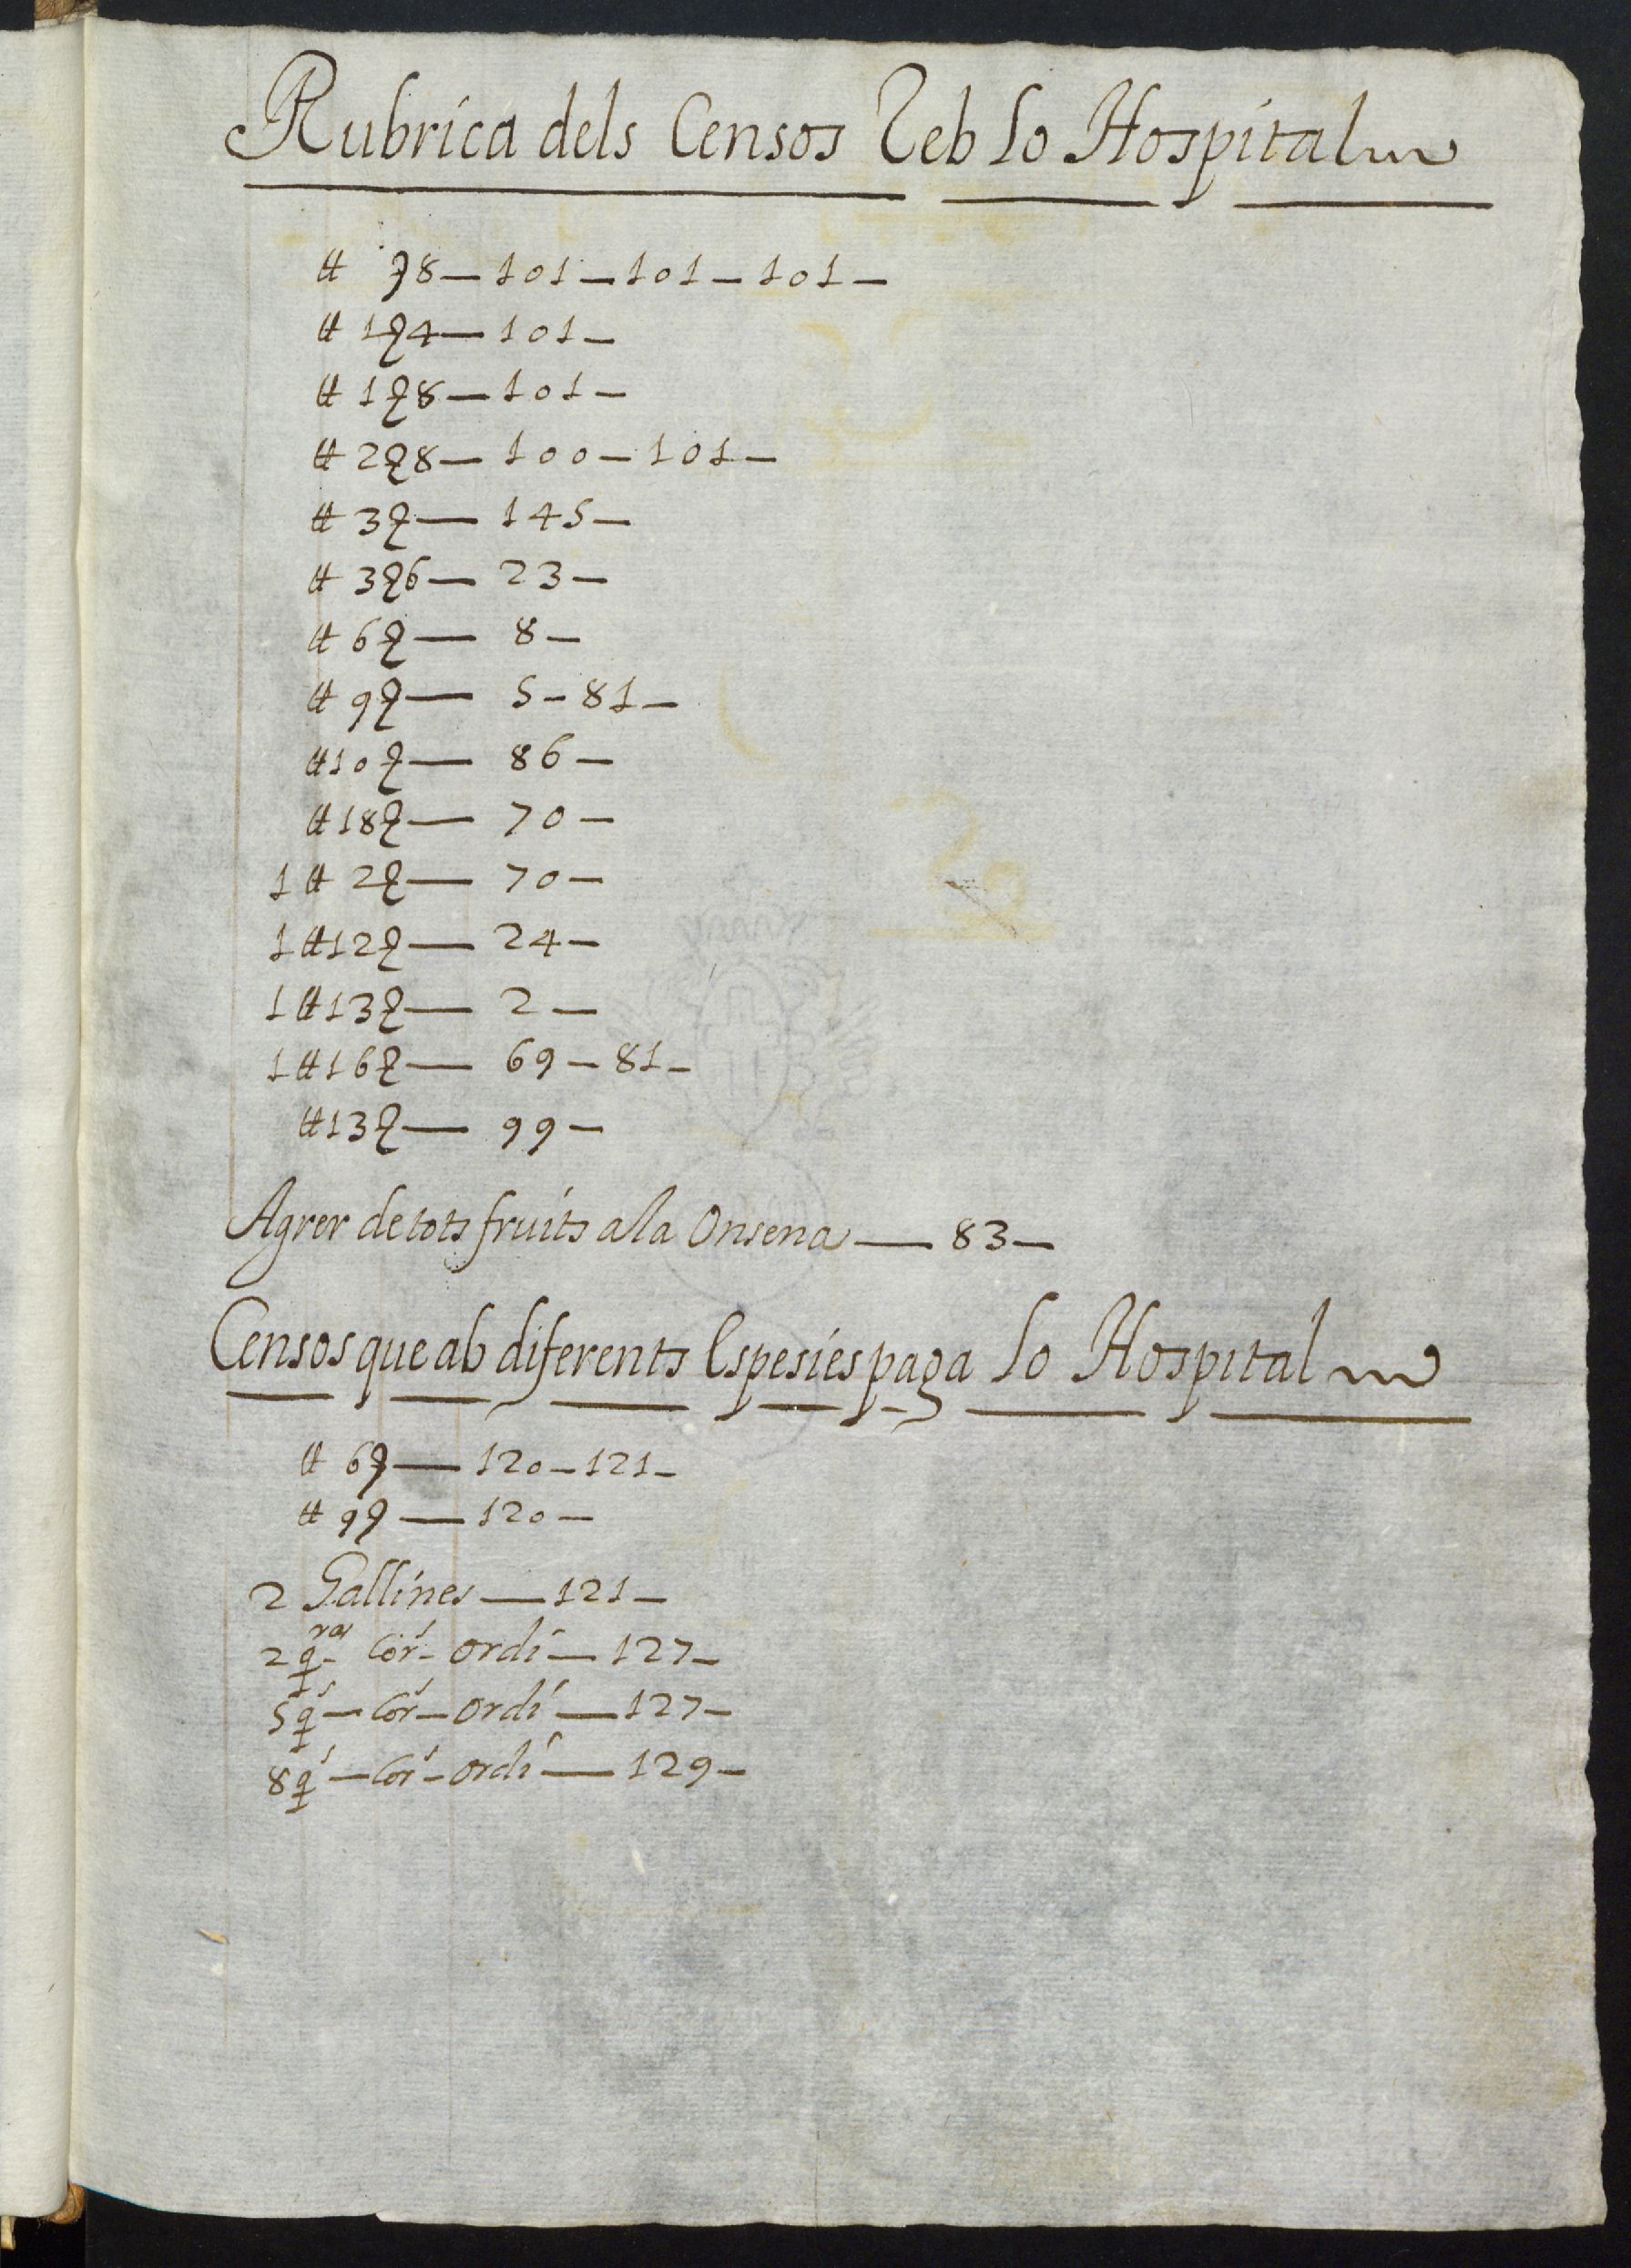 Rubrica dels Censos Reb lo Hospital
₶ ꝭ8—101—101—101—
₶ 1ꝭ4—101—
₶ 1ꝭ8—101—
₶ 2ꝭ8—100—101—
₶ 3ꝭ—145—
₶ 3ꝭ6—23—
₶ 6ꝭ—8—
₶ 9ꝭ—5—81—
₶10ꝭ—86—
₶18ꝭ—70—
1₶ 2ꝭ—70—
1₶12ꝭ—24—
1₶13ꝭ—2—
1₶16ꝭ—69—81—
₶13ꝭ—99—
Agrer de tots fruits a la Onsena—83—
Censos que ab diferents Espesies paga lo Hospital
₶ 6ꝭ—120—121—
₶ 9ꝭ—120—
2 Gallines—121—
2 q.ras Cor.s ordi—127—
5 q.s—Cor.s—ordi—127—
8 q.s—Cor.s—ordi—129—